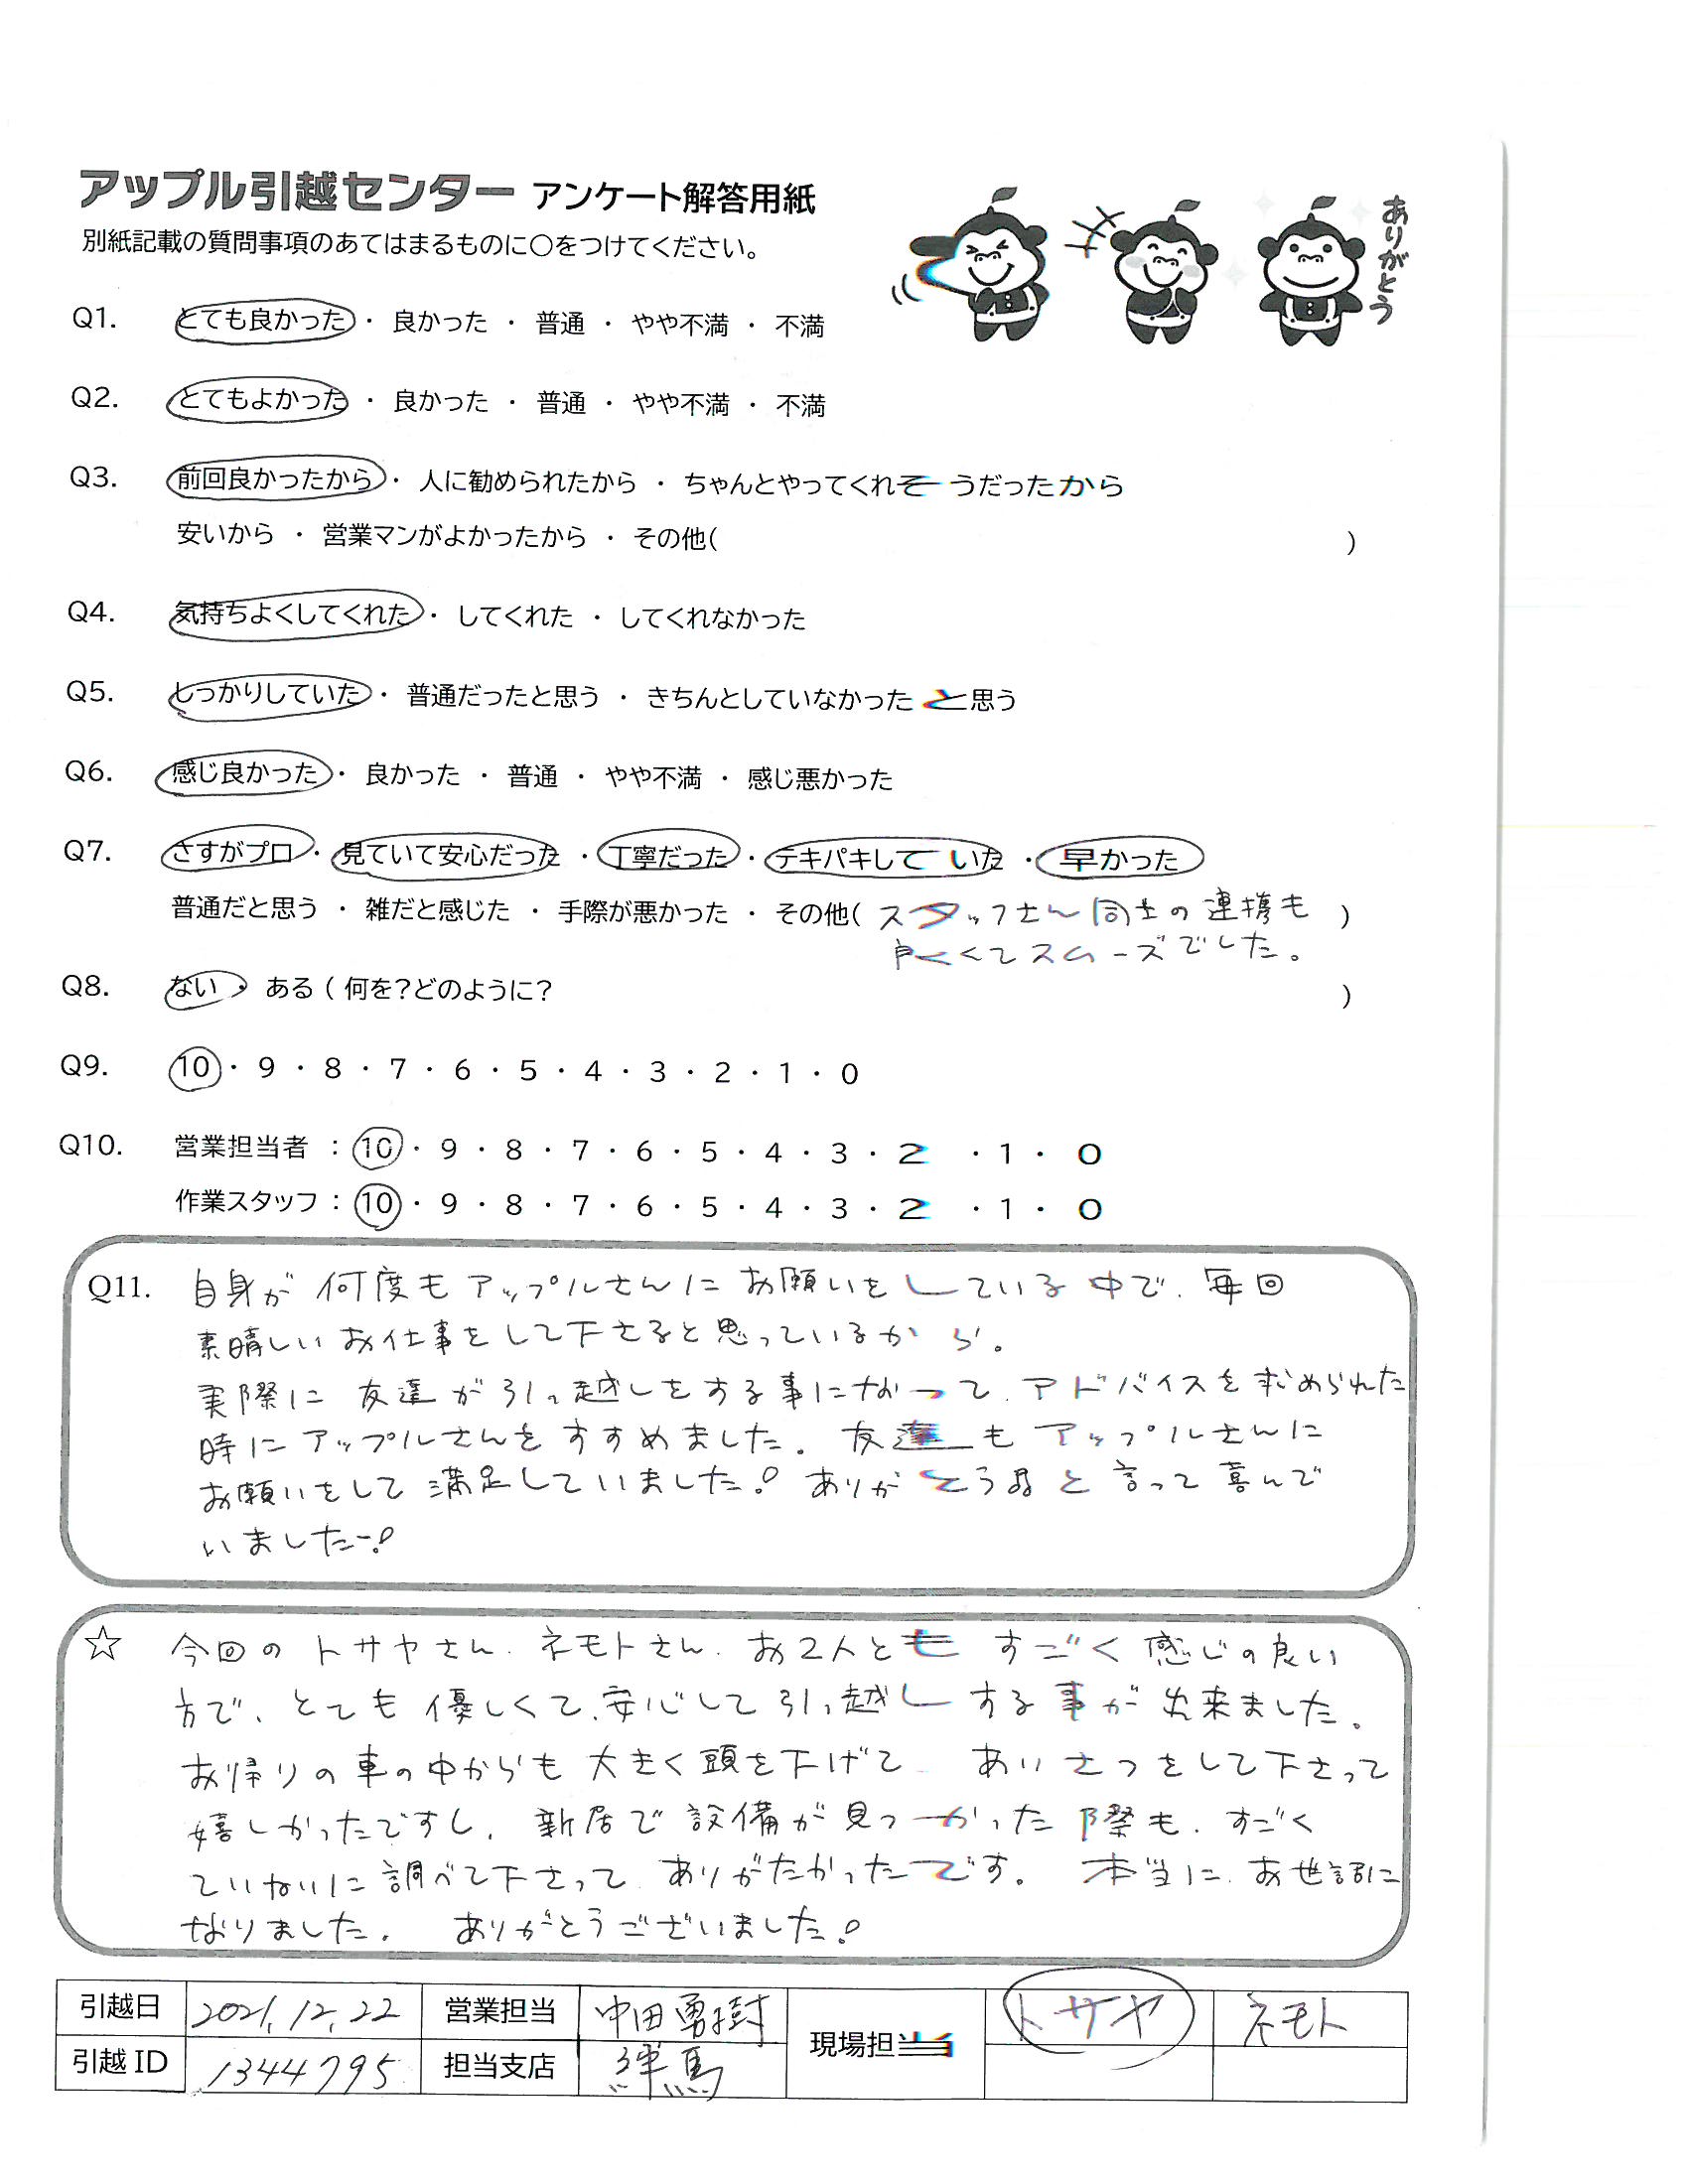 アップル引越センター アンケート解答用紙
ありがとう
別紙記載の質問事項のあてはまるものに○をつけてください。
Q1. とても良かった ・ 良かった ・ 普通 ・ やや不満 ・ 不満
Q2. とてもよかった ・ 良かった ・ 普通 ・ やや不満 ・ 不満
Q3. 前回良かったから ・ 人に勧められたから ・ ちゃんとやってくれそうだったから
安いから ・ 営業マンがよかったから ・ その他( )
Q4. 気持ちよくしてくれた ・ してくれた ・ してくれなかった
Q5. しっかりしていた ・ 普通だったと思う ・ きちんとしていなかったと思う
Q6. 感じ良かった ・ 良かった ・ 普通 ・ やや不満 ・ 感じ悪かった
Q7. さすがプロ ・ 見ていて安心だった ・ 丁寧だった ・ テキパキしていた ・ 早かった
普通だと思う ・ 雑だと感じた ・ 手際が悪かった ・ その他( スタッフさん同士の連携も )
良くてスムーズでした。
Q8. ない ・ ある ( 何を?どのように? )
Q9. 10 ・ 9 ・ 8 ・ 7 ・ 6 ・ 5 ・ 4 ・ 3 ・ 2 ・ 1 ・ 0
Q10. 営業担当者 : 10 ・ 9 ・ 8 ・ 7 ・ 6 ・ 5 ・ 4 ・ 3 ・ 2 ・ 1 ・ 0
作業スタッフ : 10 ・ 9 ・ 8 ・ 7 ・ 6 ・ 5 ・ 4 ・ 3 ・ 2 ・ 1 ・ 0
Q11. 自身が何度もアップルさんにお願いをしている中で、毎回
素晴しいお仕事をして下さると思っているから。
実際に友達が引っ越しをする事になって、アドバイスを求められた
時にアップルさんをすすめました。友達もアップルさんに
お願いをして満足していました! ありがとうと言って喜んで
いましたー!
☆ 今回のトサヤさん、ネモトさん、お2人ともすごく感じの良い
方で、とても優しくて、安心して引っ越しする事が出来ました。
お帰りの車の中からも大きく頭を下げて あいさつをして下さって
嬉しかったですし、新居で設備が見つかった際も、すごく
ていねいに調べて下さって、ありがたかったです。 本当に、お世話に
なりました。 ありがとうございました!
引越日 2021.12.22 営業担当 中田勇樹 現場担当 トサヤ ネモト
引越ID 1344795 担当支店 練馬